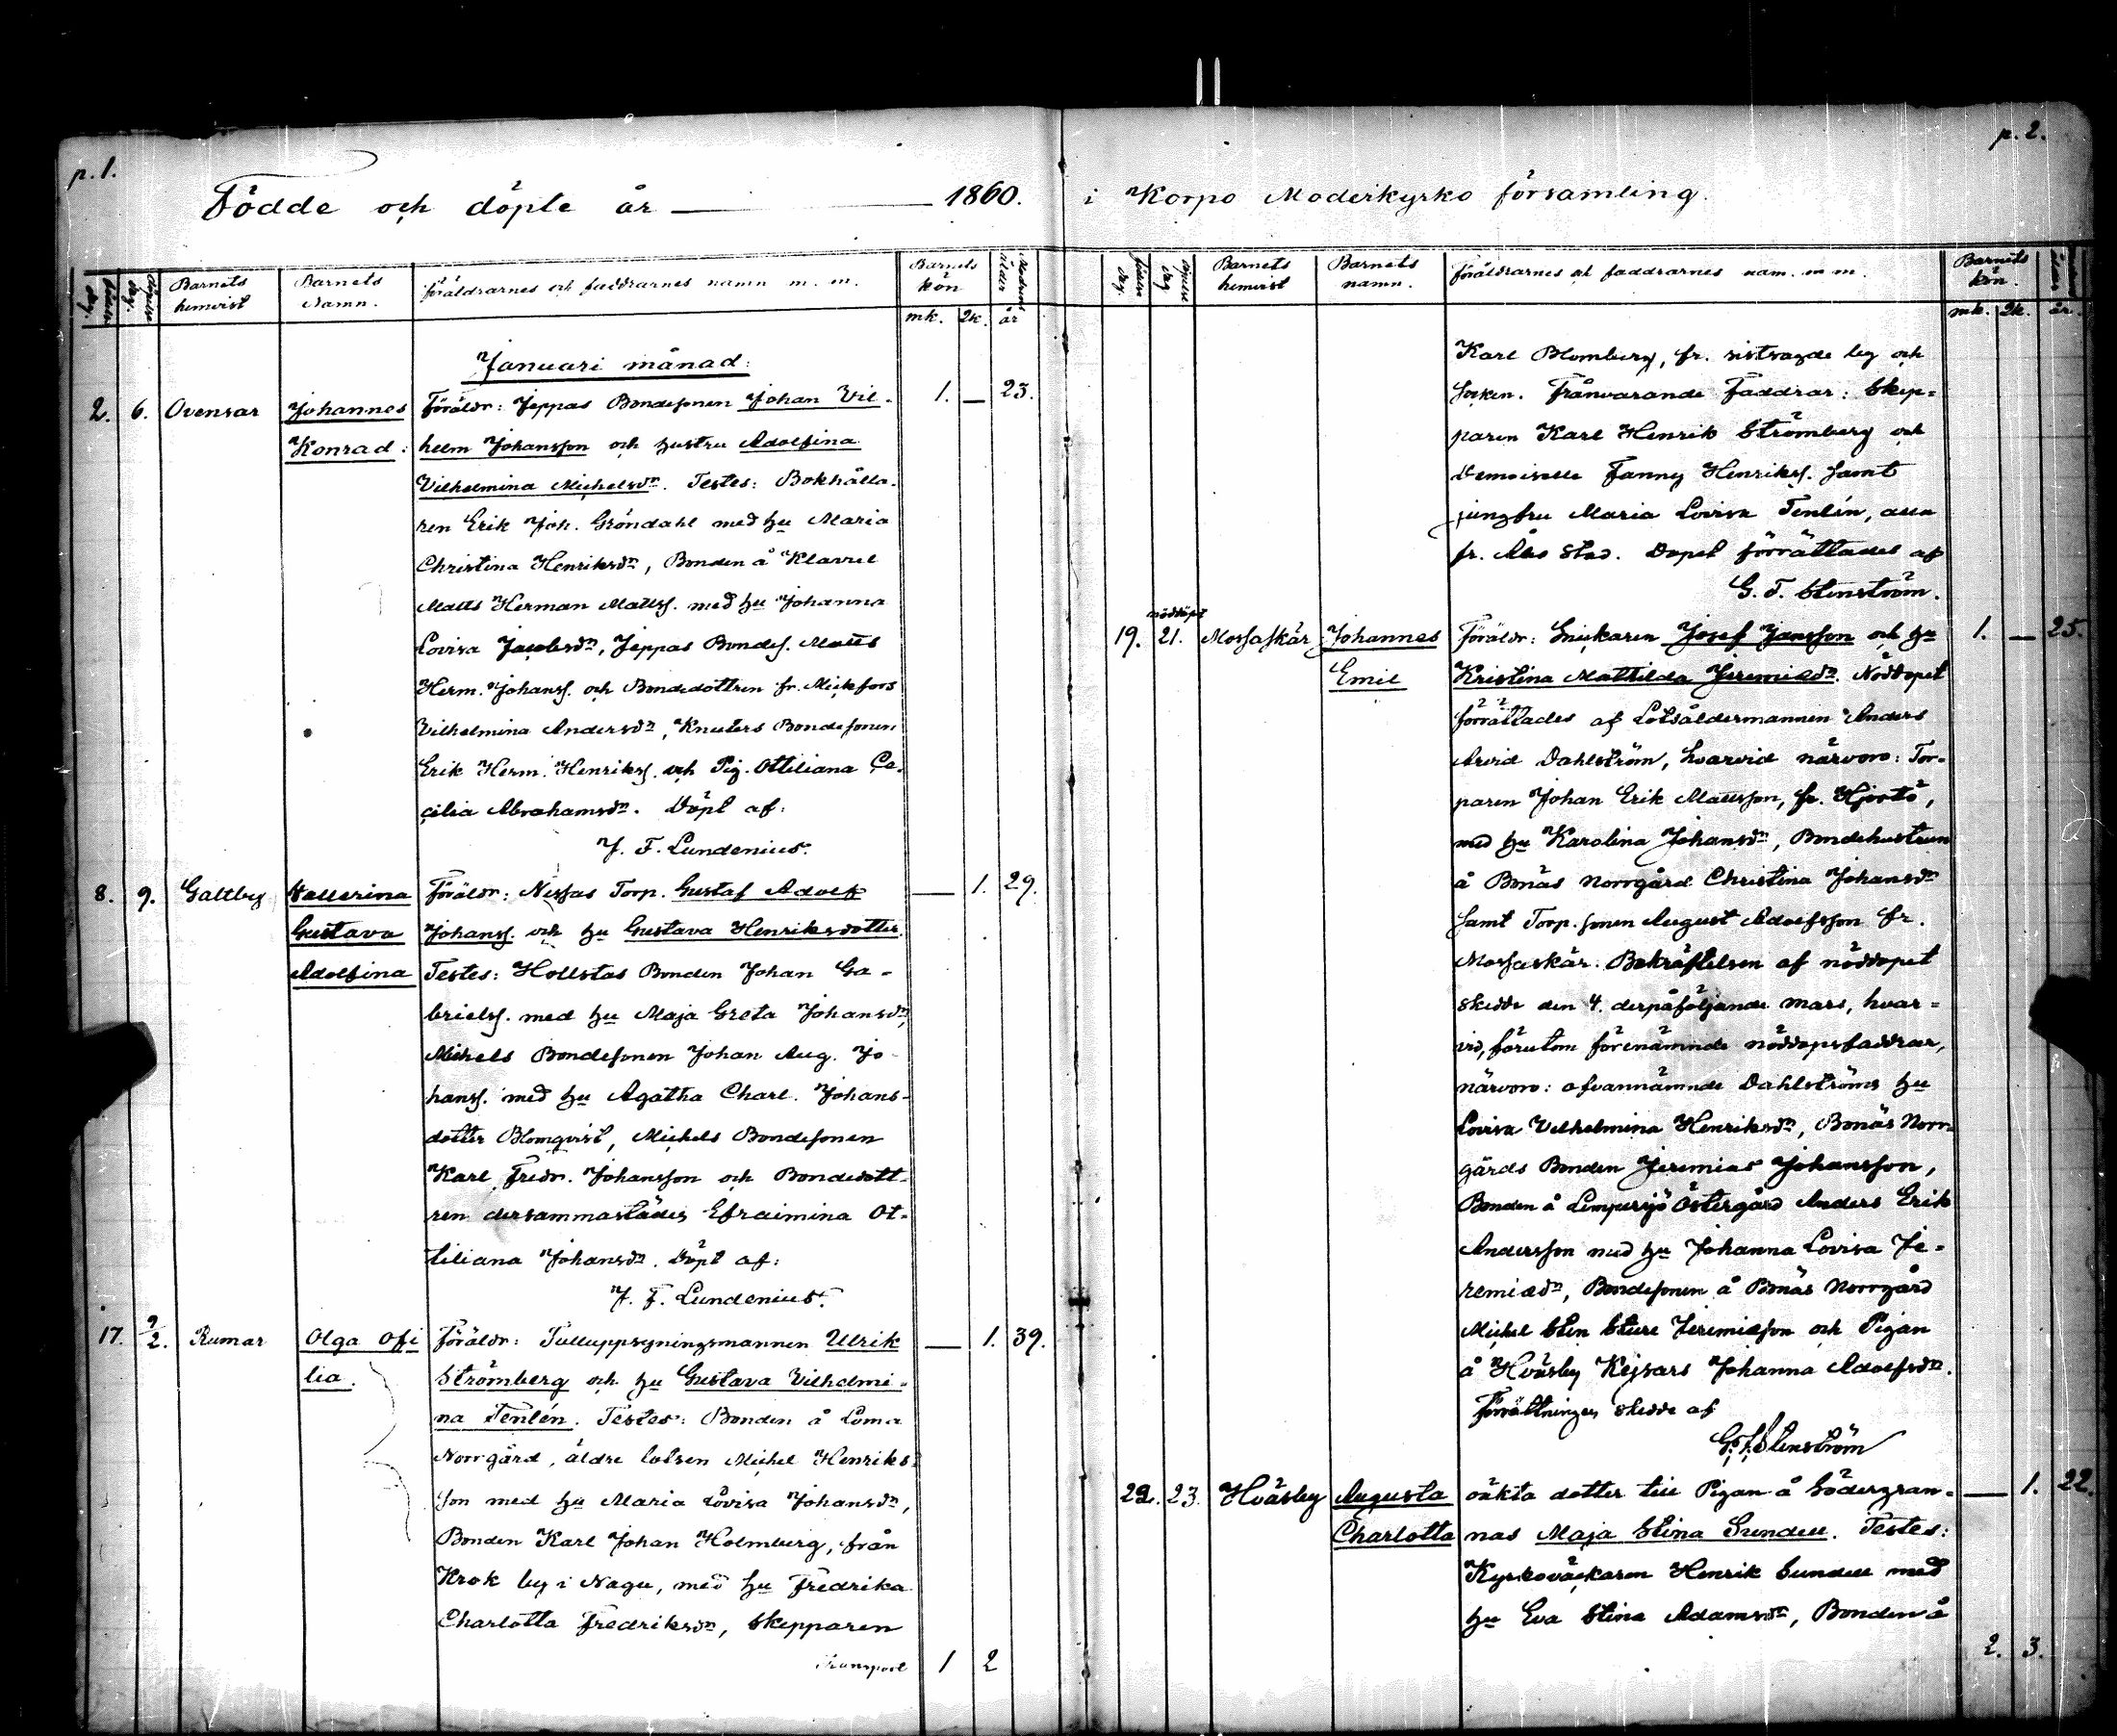 p. 1.
Födde och döpte år 1860.
Födelse dag.
Döpelse dag.
Barnets hemvist
Barnets Namn.
föräldrarnes och faddrarnes namn m. m.
Barnets kön
mk. qk.
Moderns ålder år
Januari månad:
2. 6. Ovensar Johannes Föräldr: Jeppas Bondesonen Johan Vil- 1. — 23.
Konrad: helm Johansson och hustru Adolfina
Vilhelmina Michelsdn. Testes: Bokhålla-
ren Erik Joh. Gröndahl med hu Maria
Christina Henriksdn, Bonden å Klavul
Matts Herman Mattss. med hu Johanna
Lovisa Jacobsdn, Jeppas Bondes. Matts
Herm. Johanss. och Bondedottren fr.
Vilhelmina Andersdn, Knuters Bondesonen
Erik Herm. Henrikss. och Pig. Ottiliana Ce-
cilia Abrahamsdn. Döpt af:
J. F. Lundenius.
8. 9. Galtby Vallerina Föräldr: Nissas Torp. Gustaf Adolf — 1. 29.
Gustava Johanss. och hu Gustava Henriksdotter.
Adolfina Testes: Hollstas Bonden Johan Ga-
brielss. med hu Maja Greta Johansdn,
Michels Bondesonen Johan Aug. Jo-
hanss. med hu Agatha Charl. Johans-
dotter Blomqvist, Michels Bondesonen
Karl Fredr. Johansson och Bondedott-
ren dersammastädes Efraimina Ot-
tiliana Johansdn. Döpt af:
J. F. Lundenius.
17. 9/2. Rumar Olga Ofi Föräldr: Tulluppsyningsmannen Ulrik — 1. 39.
lia. Strömberg och hu Gustava Vilhelmi-
na Tenlén. Testes: Bonden å Loma
Norrgård, äldre lotsen Michel Henriks-
son med hu Maria Lovisa Johansdn,
Bonden Karl Johan Holmberg, från
Krok by i Nagu, med hu Fredrika
Charlotta Fredriksdn, Skepparen
Transport 1 2
p. 2.
i Korpo Moderkyrko församling.
födelse dag.
Döpelse dag
Barnets hemvist
Barnets namn.
föräldrarnes och faddrarnes nam. m m.
Barnets kön.
mk. qk. år.
Karl Blomberg, fr. sistsagde by och
Socken. Frånvarande Faddrar: Skep-
paren Karl Henrik Strömberg och
Demoiselle Fanny Henrikss. samt
jungfru Maria Lovisa Tenlén, alla
fr. Åbo Stad. Dopet förrättades af
G. F. Stenström.
nöddöpt
19. 21. Mossaskär Johannes Föräldr: Snickaren Josef Jansson och hu 1. — 25.
Emil Kristina Mathilda Jeremiædn. Nöddopet
förrättades af Lotsåldermannen Anders
Arvid Dahlström, hvarvid närvoro: Tor-
paren Johan Erik Mattsson, fr. Hjortö,
med hu Karolina Johansdn, Bondehustrun
å Bonäs Norrgård Christina Johansdn
samt Torp. sonen August Adolfsson fr.
Mossaskär. Bekräftelsen af nöddopet
skedde den 4. derpåföljande mars, hvar-
vid, förutom förenämnde nöddopsfaddrar,
närvoro: ofvannämnde Dahlströms hu
Lovisa Vilhelmina Henriksdn, Bonäs Norr-
gårds Bonden Jeremias Johansson,
Bonden å Limpersjö Östergård Anders Erik
Andersson med hu Johanna Lovisa Je-
remiædn, Bondesonen å Bonäs Norrgård
Michel Sten Sture Jeremiæson och Pigan
å Hväsby Kejsars Johanna Adolfsdn.
Förrättningen skedde af
G. F. Stenström
22. 23. Hväsby Augusta oäkta dotter till Pigan å Södergran- — 1. 22.
Charlotta nas Maja Stina Sundell. Testes:
Kyrkoväckaren Henrik Sundell med
hu Eva Stina Adamsdn, Bonden å
2. 3.